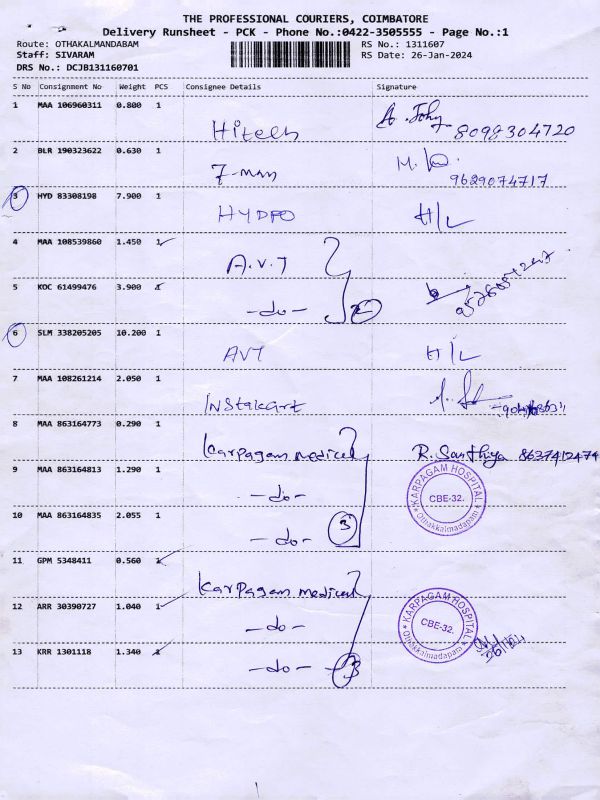 THE PROFESSIONAL COURIERS, COIMBATORE
Delivery Runsheet - PCK - Phone No.:0422-3505555 - Page No.:1
Route: OTHAKALMANDABAM RS No.: 1311607
Staff: SIVARAM RS Date: 26-Jan-2024
DRS No.: DCJB131160701
S No Consignment No Weight PCS Consignee Details Signature
1 MAA 106960311 0.800 1 Hitech A. Johy 8098304720
2 BLR 190323622 0.630 1 7-man M. 9629074717
3 HYD 83308198 7.900 1 HYDPO H/L
4 MAA 108539860 1.450 1 A.V.T
5 KOC 61499476 3.900 1 -do- 2
6 SLM 338205205 10.200 1 AVT H/L
7 MAA 108261214 2.050 1 INStakart
8 MAA 863164773 0.290 1 Karpagam medical R. Santhiya 8637412474
9 MAA 863164813 1.290 1 -do- KARPAGAM HOSPITAL CBE-32. Othakkalmadapam
10 MAA 863164835 2.055 1 -do- 3
11 GPM 5348411 0.560 1 Karpagam medical
12 ARR 30390727 1.040 1 -do- KARPAGAM HOSPITAL CBE-32. Othakkalmadapam
13 KRR 1301118 1.340 1 -do- 3